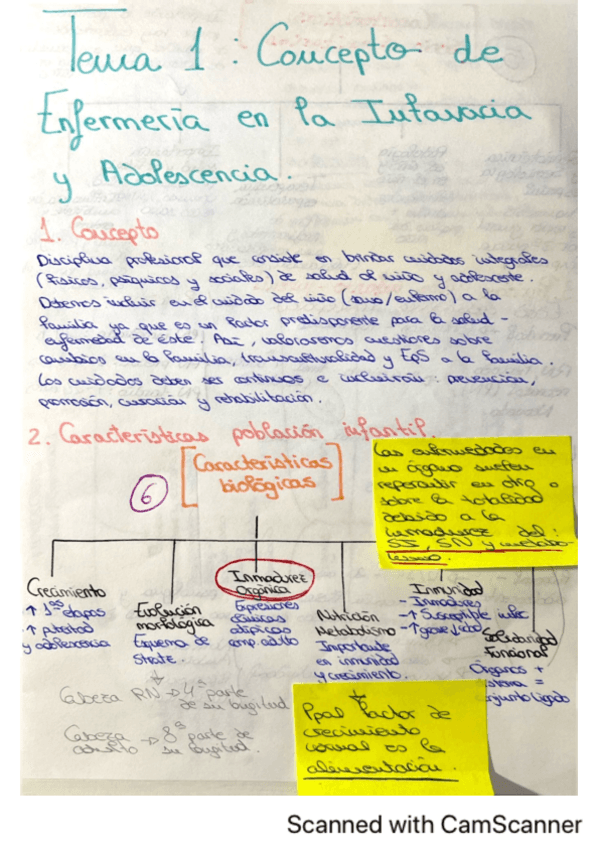 Tema 1: Concepto de
Enfermería en la Infancia
y Adolescencia.
1. Concepto
Disciplina profesional que consiste en brindar cuidados integrales
(físicos, psíquicos y sociales) de salud al niño y adolescente.
Debemos incluir en el cuidado del niño (sano/enfermo) a la
familia ya que es un factor predisponente para la salud -
enfermedad de éste. Así, valoraremos cuestiones sobre
cambios en la familia, transculturalidad y EpS a la familia.
Los cuidados deben ser continuos e incluirán: prevención,
promoción, curación y rehabilitación.
2. Características población infantil.
[Características
biológicas]
6
Las enfermedades en
un órgano suelen
repercutir en otro o
sobre la totalidad
debido a la
inmadurez del:
SI, SN y metabo-
lismo.
Crecimiento
↑ 1ªs etapas
↑ pubertad
y adolescencia
Evolución
morfológica
Esquema de
Stratz.
Inmadurez
Orgánica
Expresiones
clínicas
atípicas
comp adulto
Nutrición
Metabolismo
Importante
en inmunidad
y crecimiento.
Inmunidad
- Inmadures
- ↑ Susceptible infec
- ↑ gravedad
Solidaridad
Funcional
Órganos +
sistema =
conjunto ligado
Cabeza RN → 4ª parte
de su longitud
Cabeza adulto → 8ª parte de
su longitud.
Ppal factor de
crecimiento
normal es la
alimentación.
Scanned with CamScanner